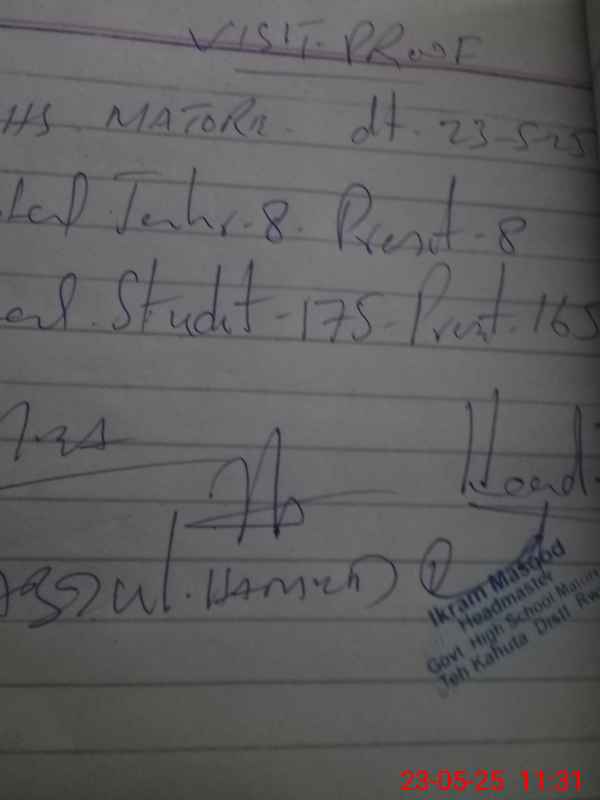 VISIT PROOF
HS. MATORE. dt. 23-5-25
tal Teachr. 8. Presnt - 8
al. Studet - 175 - Presnt. 165
Head
Abdul. HAMEED
Ikram Masood
Headmaster
Govt High School Mator
Teh Kahuta Distt Rw
23-05-25 11:31